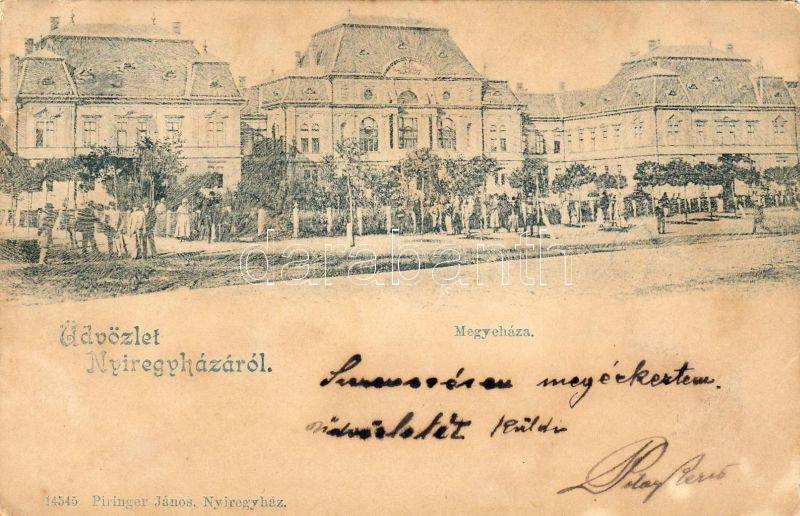 darabanth
Üdvözlet
Nyiregyházáról.
Megyeháza.
Szerencsésen megérkeztem.
üdvözletét küldi
14545 Piringer János, Nyiregyház.